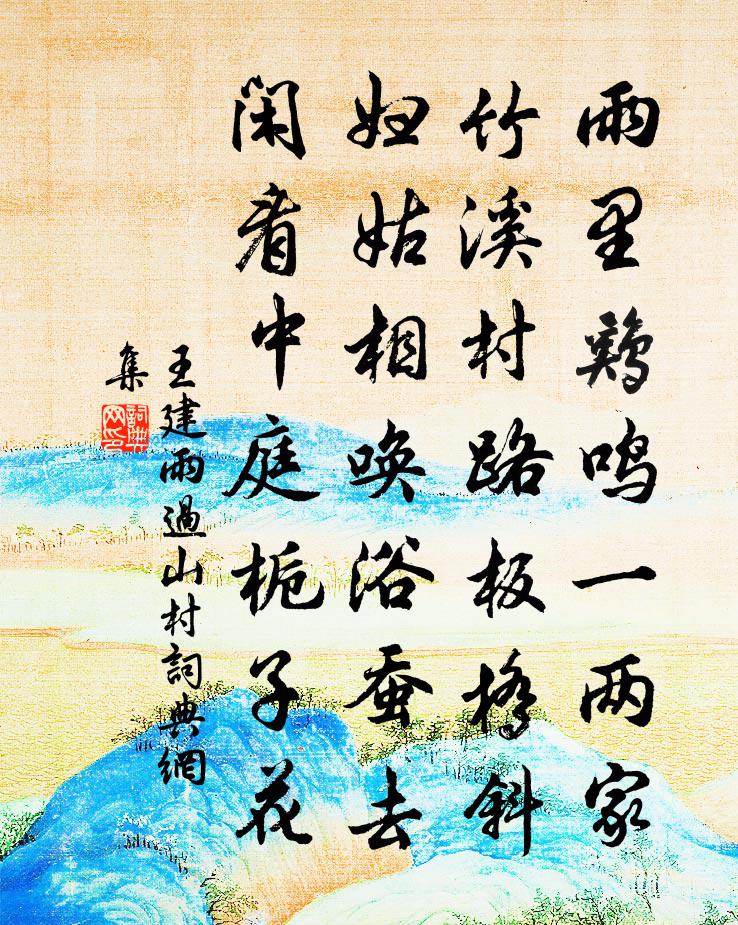 雨里鷄鳴一两家
竹溪村路板橋斜
妇姑相唤浴蚕去
闲看中庭栀子花
王建雨過山村詞典網
集
詞典網印